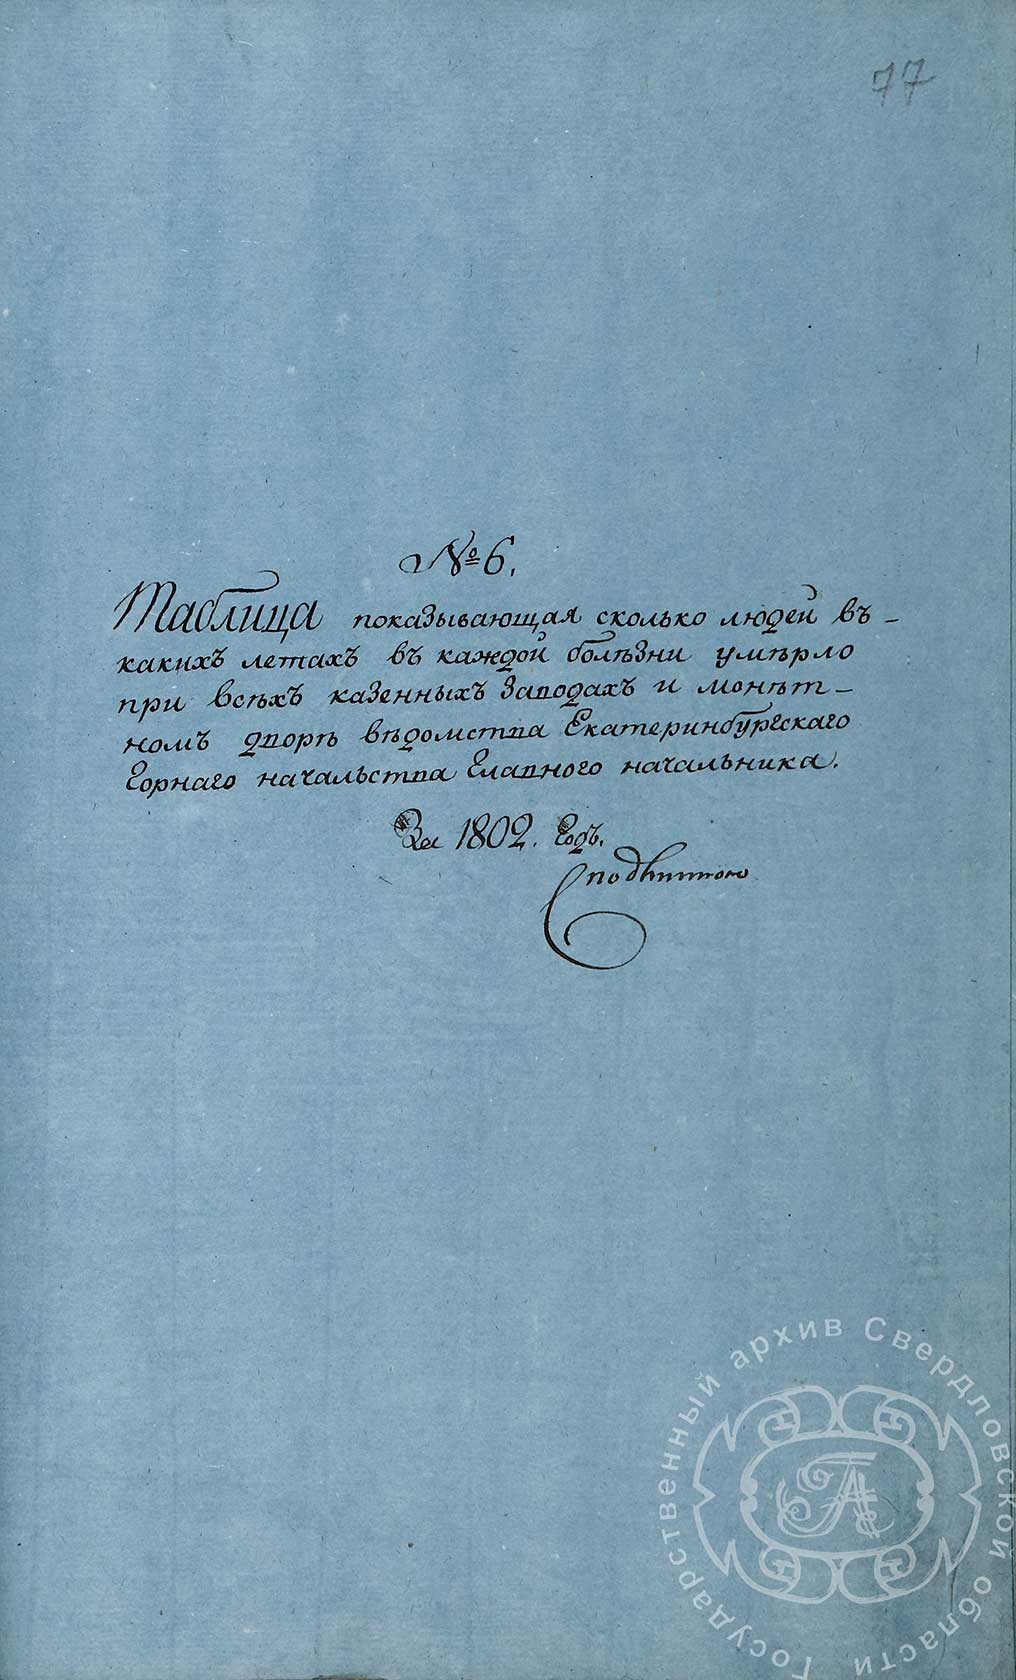 77
№ 6.
Таблица показывающая сколько людей въ-
какихъ летахъ въ каждой болѣзни умѣрло
при всѣхъ казенныхъ заводахъ и монѣт-
номъ дворѣ вѣдомства Екатеринбургскаго
Горнаго начальства Главного начальника.
За 1802. Годъ.
Государственный архив Свердловской области